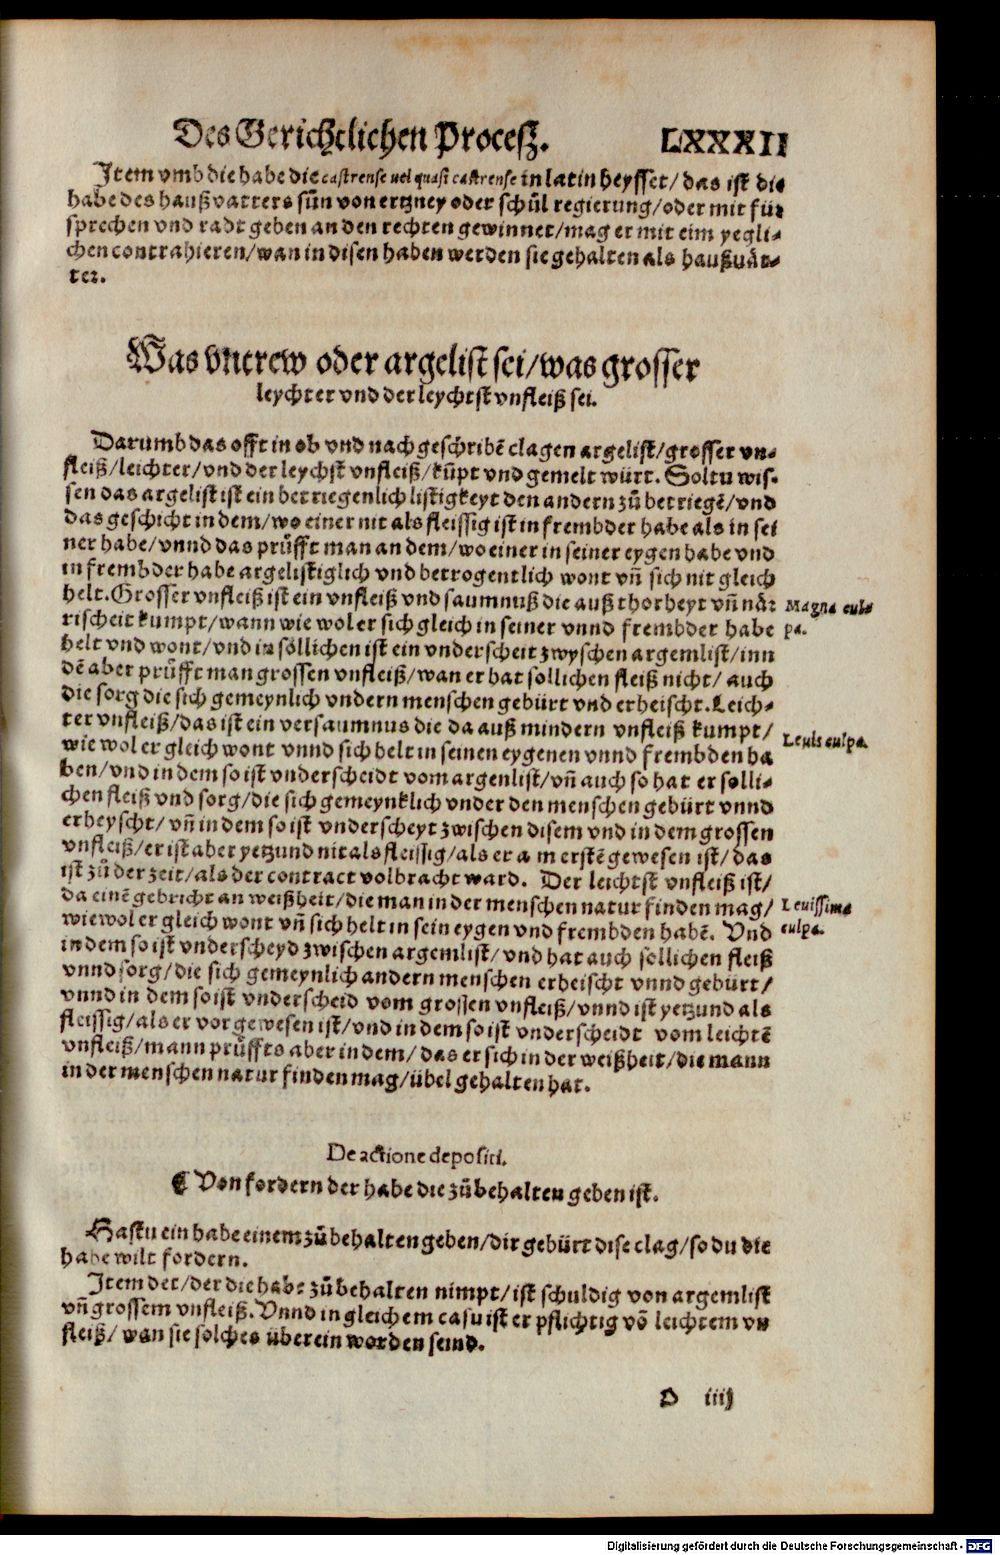 Des Gerichtlichen Proceß. LXXXII
Item vmb die habe die castrense uel quasi castrense in latin heysset/ das ist die
habe des haußvatters sün von ertzney oder schůl regierung/oder mit für
sprechen vnd radt geben an den rechten gewinnet/mag er mit eim yegli-
chen contrahieren/wan in disen haben werden sie gehalten als haußuät-
ter.
Was vntrew oder argelist sei/was grosser
leychter vnd der leychtst vnfleiß sei.
Darumb das offt in ob vnd nach geschribẽ clagen argelist/grosser vn-
fleiß/leichter/vnd der leychst vnfleiß/kũpt vnd gemelt würt. Soltu wis-
sen das argelist ist ein betriegenlich listigkeyt den andern zů betriegẽ/vnd
das geschicht in dem/wo einer nit als fleissig ist in frembder habe als in sei
ner habe/vnnd das prüfft man an dem/wo einer in seiner eygen habe vnd
in frembder habe argelistiglich vnd betrogentlich wont vñ sich nit gleich
helt. Grosser vnfleiß ist ein vnfleiß vnd saumnuß die auß thorheyt vñ när
rischeit kumpt/wann wie wol er sich gleich in seiner vnnd frembder habe
helt vnd wont/vnd in söllichen ist ein vnderscheit zwyschen argemlist/inn
dẽ aber prüfft man grossen vnfleiß/wan er hat sollichen fleiß nicht/ auch
die sorg die sich gemeynlich vndern menschen gebürt vnd erheischt. Leich-
ter vnfleiß/das ist ein versaumnus die da auß mindern vnfleiß kumpt/
wie wol er gleich wont vnnd sich helt in seinen eygenen vnnd frembden ha
ben/vnd in dem so ist vnderscheidt vom argenlist/vñ auch so hat er solli-
chen fleiß vnd sorg/die sich gemeynklich vnder den menschen gebürt vnnd
erheyscht/ vñ in dem so ist vnderscheyt zwischen disem vnd in dem grossen
vnfleiß/er ist aber yetzund nit als fleissig/als er am erstẽ gewesen ist/das
ist zů der zeit/als der contract volbracht ward. Der leichtst vnfleiß ist/
da einẽ gebricht an weißheit/die man in der menschen natur finden mag/
wie wol er gleich wont vñ sich helt in sein eygen vnd frembden habẽ. Vnd
in dem so ist vnderscheyd zwischen argemlist/vnd hat auch sollichen fleiß
vnnd sorg/die sich gemeynlich andern menschen erheischt vnnd gebürt/
vnnd in dem so ist vnderscheid vom grossen vnfleiß/vnnd ist yetzund als
fleissig/als er vor gewesen ist/vnd in dem so ist vnderscheidt vom leichtẽ
vnfleiß/mann prüffts aber in dem/das er sich in der weißheit/die mann
in der menschen natur finden mag/übel gehalten hat.
Magna cul-
pa.
Leuis culpa.
Leuissima
culpa.
De actione depositi.
¶ Von fordern der habe die zů behalten geben ist.
Hastu ein habe einem zů behalten geben/dir gebürt dise clag/so du die
habe wilt fordern.
Item der/der die habe zů behalten nimpt/ist schuldig von argemlist
vñ grossem vnfleiß. Vnnd in gleichem casu ist er pflichtig võ leichtem vn
fleiß/wan sie solches überein worden seind.
P iiij
Digitalisierung gefördert durch die Deutsche Forschungsgemeinschaft - DFG